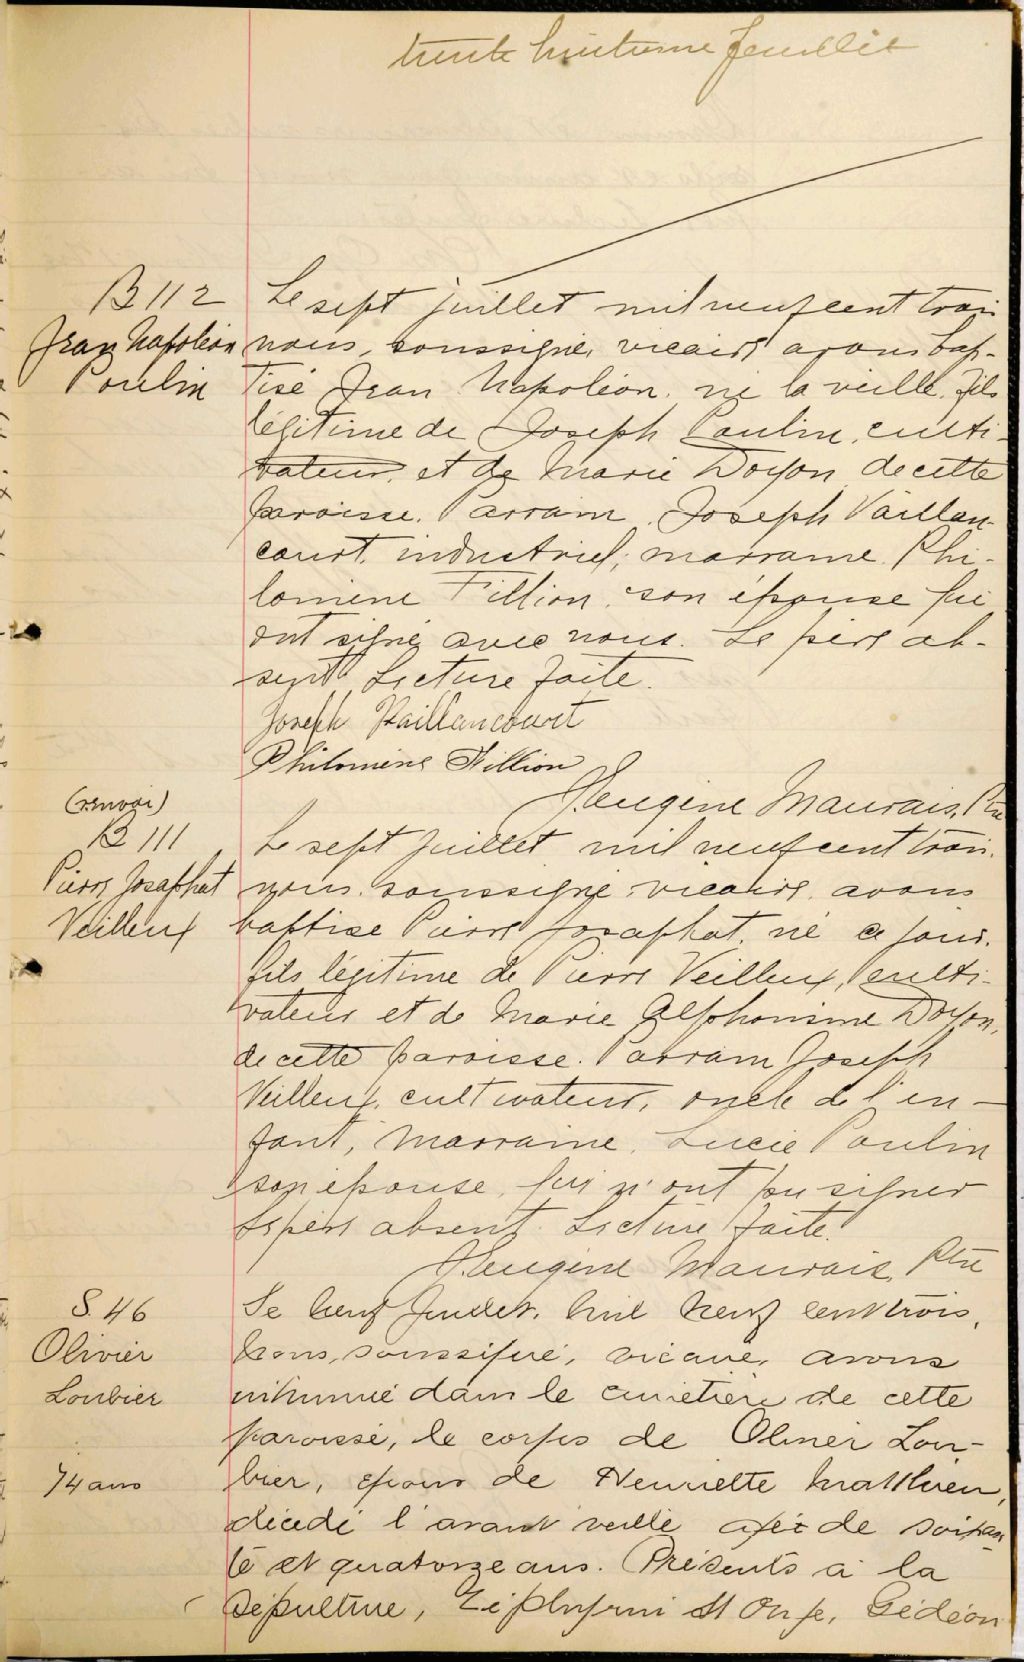 trente huitième feuillet
B 112
Jean Napoléon
Poulin
Le sept juillet mil neuf cent trois
nous, soussigné, vicaire avons bap-
tisé Jean Napoléon, né la veille, fils
légitime de Joseph Poulin, culti-
vateur, et de Marie Doyon de cette
paroisse. Parrain, Joseph Vaillan-
court, industriel; marraine, Phi-
lomène Fillion, son épouse qui
ont signé avec nous. Le père ab-
sent Lecture faite.
Joseph Vaillancourt
Philomène Fillion
J. Eugène Mauvais, Ptre
(renvoi)
B 111
Pierre Josaphat
Veilleux
Le sept juillet mil neuf cent trois,
nous, soussigné, vicaire, avons
baptisé Pierre Josaphat, né ce jour,
fils légitime de Pierre Veilleux, culti-
vateur et de Marie Alphonsine Doyon,
de cette paroisse. Parrain Joseph
Veilleux, cultivateur, oncle de l'en-
fant, Marraine, Lucie Poulin
son épouse, qui n'ont pu signer
Le père absent. Lecture faite.
J. Eugène Mauvais, Ptre
S. 46
Olivier
Loubier
74 ans
Le neuf Juillet, mil neuf cent trois,
nous, soussigné, vicaire, avons
inhumé dans le cimetière de cette
paroisse, le corps de Olivier Lou-
bier, époux de Henriette Matthieu,
décédé l'avant veille âgé de soixan
te et quatorze ans. Présents à la
sépulture, St Onge, Gédéon